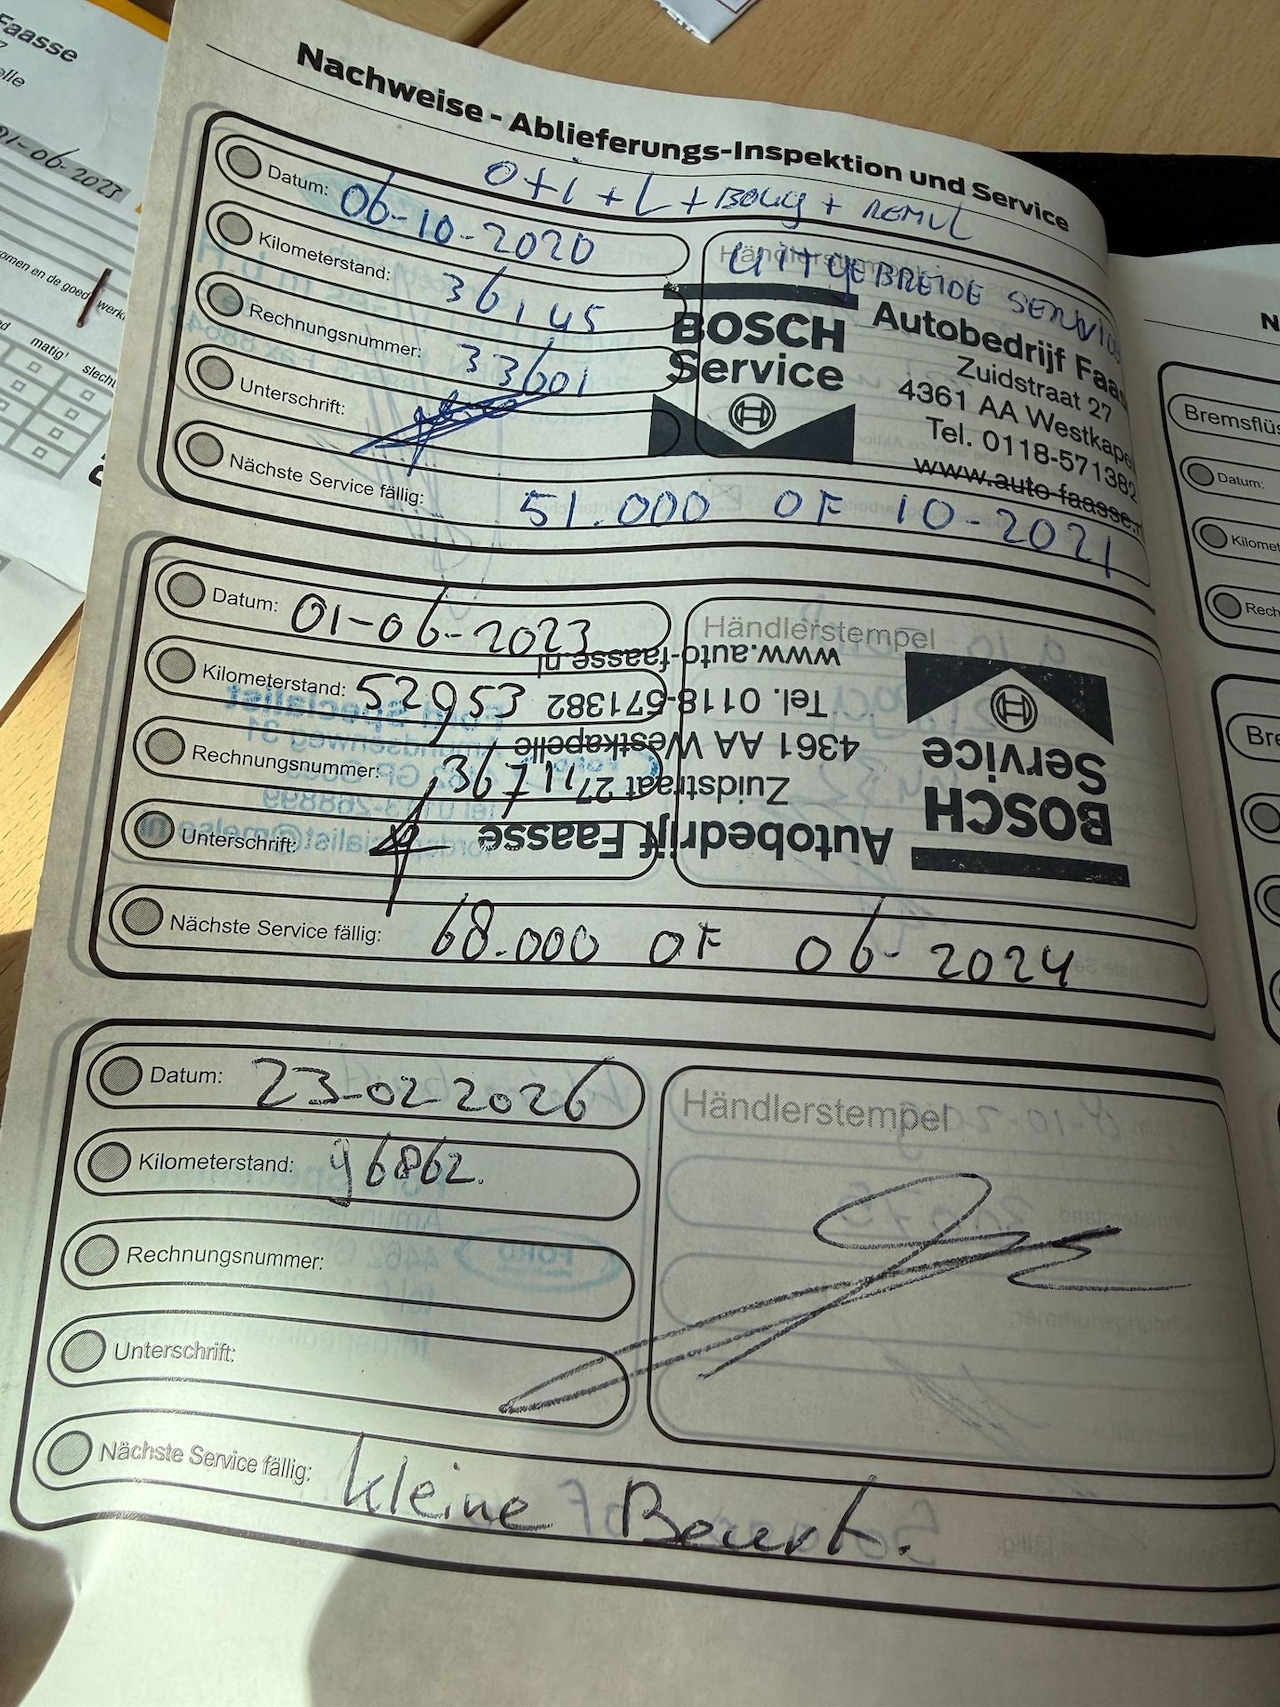 Faasse
01-06-2023
matig¹
slecht
Nachweise - Ablieferungs-Inspektion und Service
O+i + L + BOUG + REMVL
Datum: 06-10-2020
Kilometerstand: 36145
Rechnungsnummer: 33601
Unterschrift:
Nächste Service fällig: 51.000 OF 10-2021
Händlerstempel
UITGEBREIDE SERVICE
BOSCH
Service
Autobedrijf Faas
Zuidstraat 27
4361 AA Westkape
Tel. 0118-571382
www.auto-faasse.n
Datum: 01-06-2023
Kilometerstand: 52953
Rechnungsnummer: 36711
Unterschrift:
Nächste Service fällig: 68.000 OF 06-2024
Händlerstempel
BOSCH
Service
Autobedrijf Faasse
Zuidstraat 27
4361 AA Westkapelle
Tel. 0118-571382
www.auto-faasse.nl
Datum: 23-02 2026
Kilometerstand: 96862.
Rechnungsnummer:
Unterschrift:
Nächste Service fällig: kleine Beurt.
Händlerstempel
Bremsflüs
Datum:
Kilomet
Rech
Bre